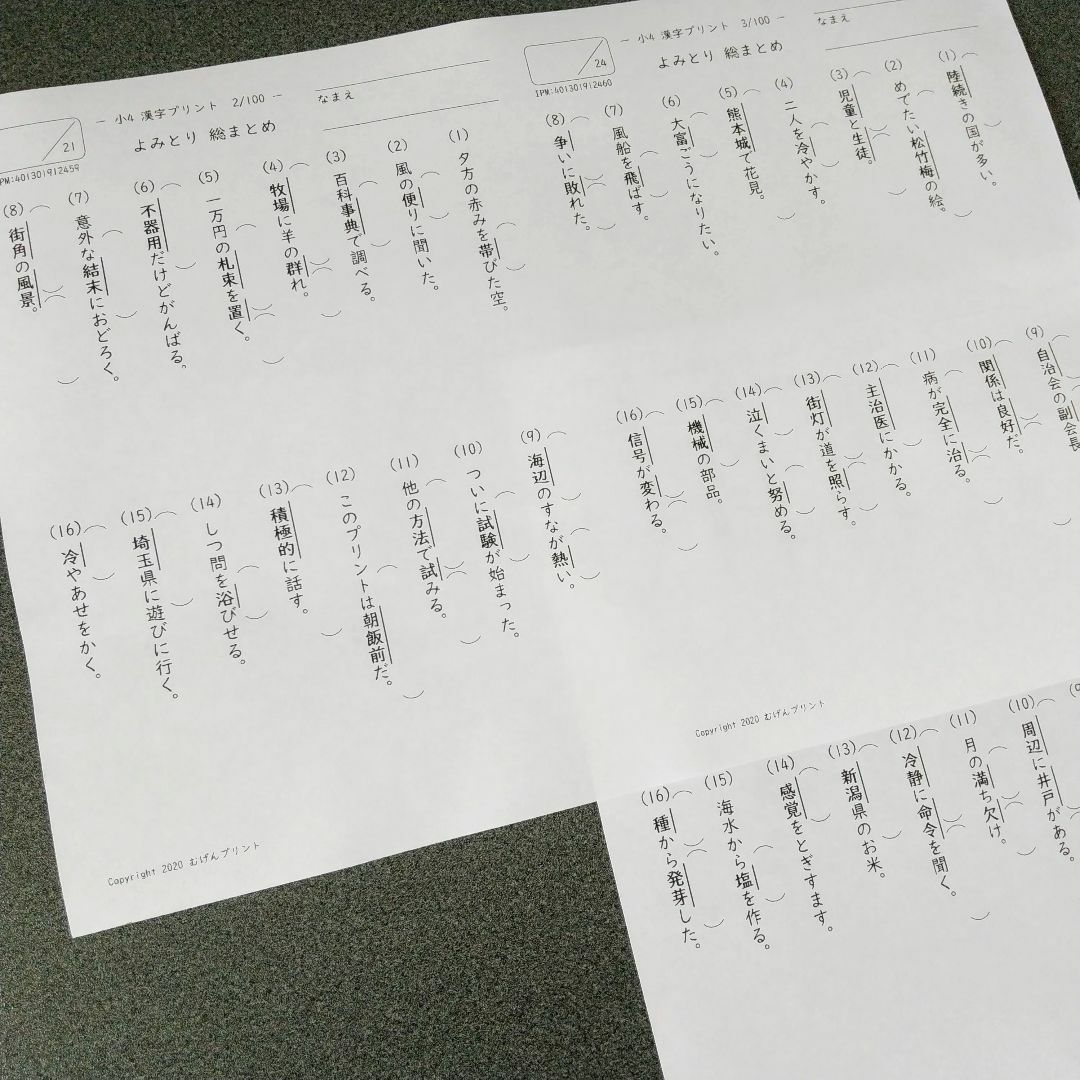 － 小4 漢字プリント 2/100 －
なまえ
よみとり 総まとめ
21
PM:401301912459
(1) 夕方の赤みを帯びた空。
(2) 風の便りに聞いた。
(3) 百科事典で調べる。
(4) 牧場に羊の群れ。
(5) 一万円の札束を置く。
(6) 不器用だけどがんばる。
(7) 意外な結末におどろく。
(8) 街角の風景。
(9) 海辺のすなが熱い。
(10) ついに試験が始まった。
(11) 他の方法で試みる。
(12) このプリントは朝飯前だ。
(13) 積極的に話す。
(14) しつ問を浴びせる。
(15) 埼玉県に遊びに行く。
(16) 冷やあせをかく。
Copyright 2020 むげんプリント
－ 小4 漢字プリント 3/100 －
なまえ
よみとり 総まとめ
24
IPM:401301912460
(1) 陸続きの国が多い。
(2) めでたい松竹梅の絵。
(3) 児童と生徒。
(4) 二人を冷やかす。
(5) 熊本城で花見。
(6) 大富ごうになりたい。
(7) 風船を飛ばす。
(8) 争いに敗れた。
(9) 自治会の副会長
(10) 関係は良好だ。
(11) 病が完全に治る。
(12) 主治医にかかる。
(13) 街灯が道を照らす。
(14) 泣くまいと努める。
(15) 機械の部品。
(16) 信号が変わる。
Copyright 2020 むげんプリント
(10) 周辺に井戸がある。
(11) 月の満ち欠け。
(12) 冷静に命令を聞く。
(13) 新潟県のお米。
(14) 感覚をとぎすます。
(15) 海水から塩を作る。
(16) 種から発芽した。